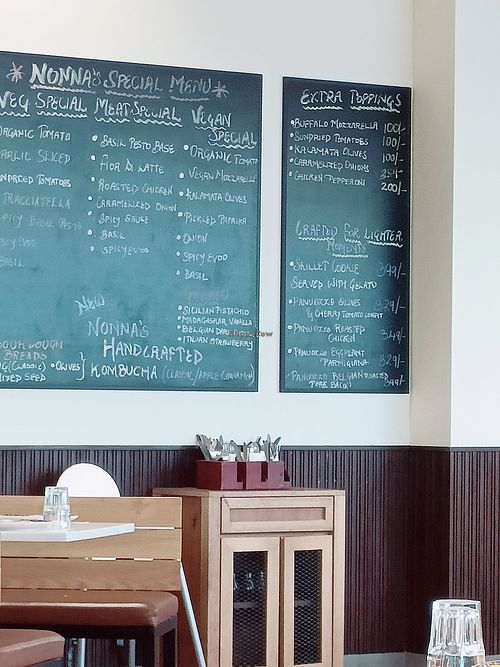 * NONNA'S SPECIAL MENU *
VEG SPECIAL MEAT SPECIAL VEGAN SPECIAL
ORGANIC TOMATO
GARLIC SLICED
TOMATOES
STRACIATELLA
SPICY BASIL PESTO
SPICY EVOO
BASIL
• BASIL PESTO BASE
• FIOR D. LATTE
• ROASTED CHICKEN
• CARAMELIZED ONION
• SPICY SAUCE
• BASIL
• SPICY EVOO
• ORGANIC TOMATO
VEGAN MOZZARELLA
• KALAMATA OLIVES
• PICKLED PAPRIKA
• ONION
• SPICY EVOO
• BASIL
• SICILIAN PISTACHIO
• MADAGASKAR VANILLA
• BELGIAN DARK
• ITALIAN STRAWBERRY
NEW
NONNA'S
HANDCRAFTED
KOMBUCHA (CLASSIC/APPLE CINNAMON)
SOUR DOUGH
BREADS
(CLASSIC) • OLIVES
MIXED SEED
EXTRA TOPPINGS
• BUFFALO MOZZARELLA 100/-
• SUNDRIED TOMATOES 100/-
• KALAMATA OLIVES 100/-
• CARAMELIZED ONIONS
• CHICKEN PEPPERONI 200/-
CRAFTED FOR LIGHTER
MOMENTS
• SKILLET COOKIE 399/-
SERVED WITH GELATO
• PANUOZZO OLIVES
& CHERRY TOMATO CONFIT
• PANUOZZO ROASTED CHICKEN 349/-
• PANUOZZO EGGPLANT PARMIGIANA 329/-
• PANUOZZO BELGIAN ROASTED